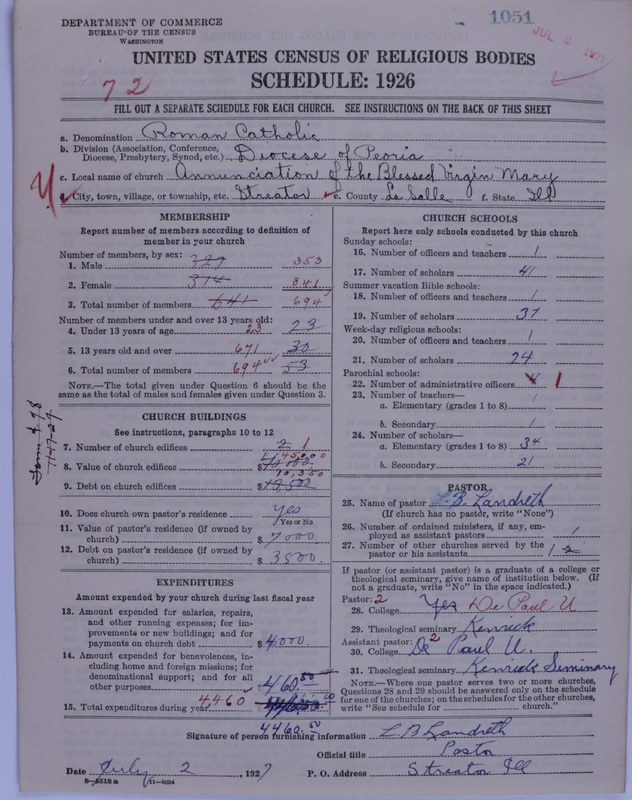 DEPARTMENT OF COMMERCE
BUREAU OF THE CENSUS
WASHINGTON
1051
JUL 2
UNITED STATES CENSUS OF RELIGIOUS BODIES
SCHEDULE: 1926
72
FILL OUT A SEPARATE SCHEDULE FOR EACH CHURCH. SEE INSTRUCTIONS ON THE BACK OF THIS SHEET
a. Denomination Roman Catholic
b. Division (Association, Conference,
Diocese, Presbytery, Synod, etc.) Diocese of Peoria
c. Local name of church Annunciation of the Blessed Virgin Mary
d. City, town, village, or township, etc. Streator e. County La Salle f. State Ill
MEMBERSHIP
Report number of members according to definition of
member in your church
Number of members, by sex:
1. Male 327 353
2. Female 314 341
3. Total number of members 641 694
Number of members under and over 13 years old:
4. Under 13 years of age 23 23
5. 13 years old and over 671 30
6. Total number of members 694 53
NOTE.—The total given under Question 6 should be the
same as the total of males and females given under Question 3.
CHURCH BUILDINGS
See instructions, paragraphs 10 to 12
7. Number of church edifices 2 1
8. Value of church edifices $ 45000
9. Debt on church edifices $ 13,500 10,350
10. Does church own pastor's residence yes
Yes or No
11. Value of pastor's residence (if owned by
church) $ 7000
12. Debt on pastor's residence (if owned by
church) $ 3500.
EXPENDITURES
Amount expended by your church during last fiscal year
13. Amount expended for salaries, repairs,
and other running expenses; for im-
provements or new buildings; and for
payments on church debt $ 4000
14. Amount expended for benevolences, in-
cluding home and foreign missions; for
denominational support; and for all
other purposes 460.50
15. Total expenditures during year 4,460
4460.50
CHURCH SCHOOLS
Report here only schools conducted by this church
Sunday schools:
16. Number of officers and teachers 1
17. Number of scholars 41
Summer vacation Bible schools:
18. Number of officers and teachers 1
19. Number of scholars 37
Week-day religious schools:
20. Number of officers and teachers 1
21. Number of scholars 24
Parochial schools:
22. Number of administrative officers 4 1
23. Number of teachers—
a. Elementary (grades 1 to 8) 1
b. Secondary 1
24. Number of scholars—
a. Elementary (grades 1 to 8) 34
b. Secondary 21
PASTOR
25. Name of pastor L. B. Landreth
(If church has no pastor, write "None")
26. Number of ordained ministers, if any, em-
ployed as assistant pastors 1
27. Number of other churches served by the
pastor or his assistants 1 2
If pastor (or assistant pastor) is a graduate of a college or
theological seminary, give name of institution below. (If
not a graduate, write "No" in the space indicated.)
Pastor: 2
28. College Yes De Paul U
29. Theological seminary Kenrick
Assistant pastor: 2
30. College De Paul U.
31. Theological seminary Kenrick Seminary
NOTE.—Where one pastor serves two or more churches,
Questions 28 and 29 should be answered only on the schedule
for one of the churches; on the schedules for the other churches,
write "See schedule for church."
Signature of person furnishing information L B Landreth
Official title Pastor
Date July 2, 1927 P. O. Address Streator Ill
8-5516a 11-9054